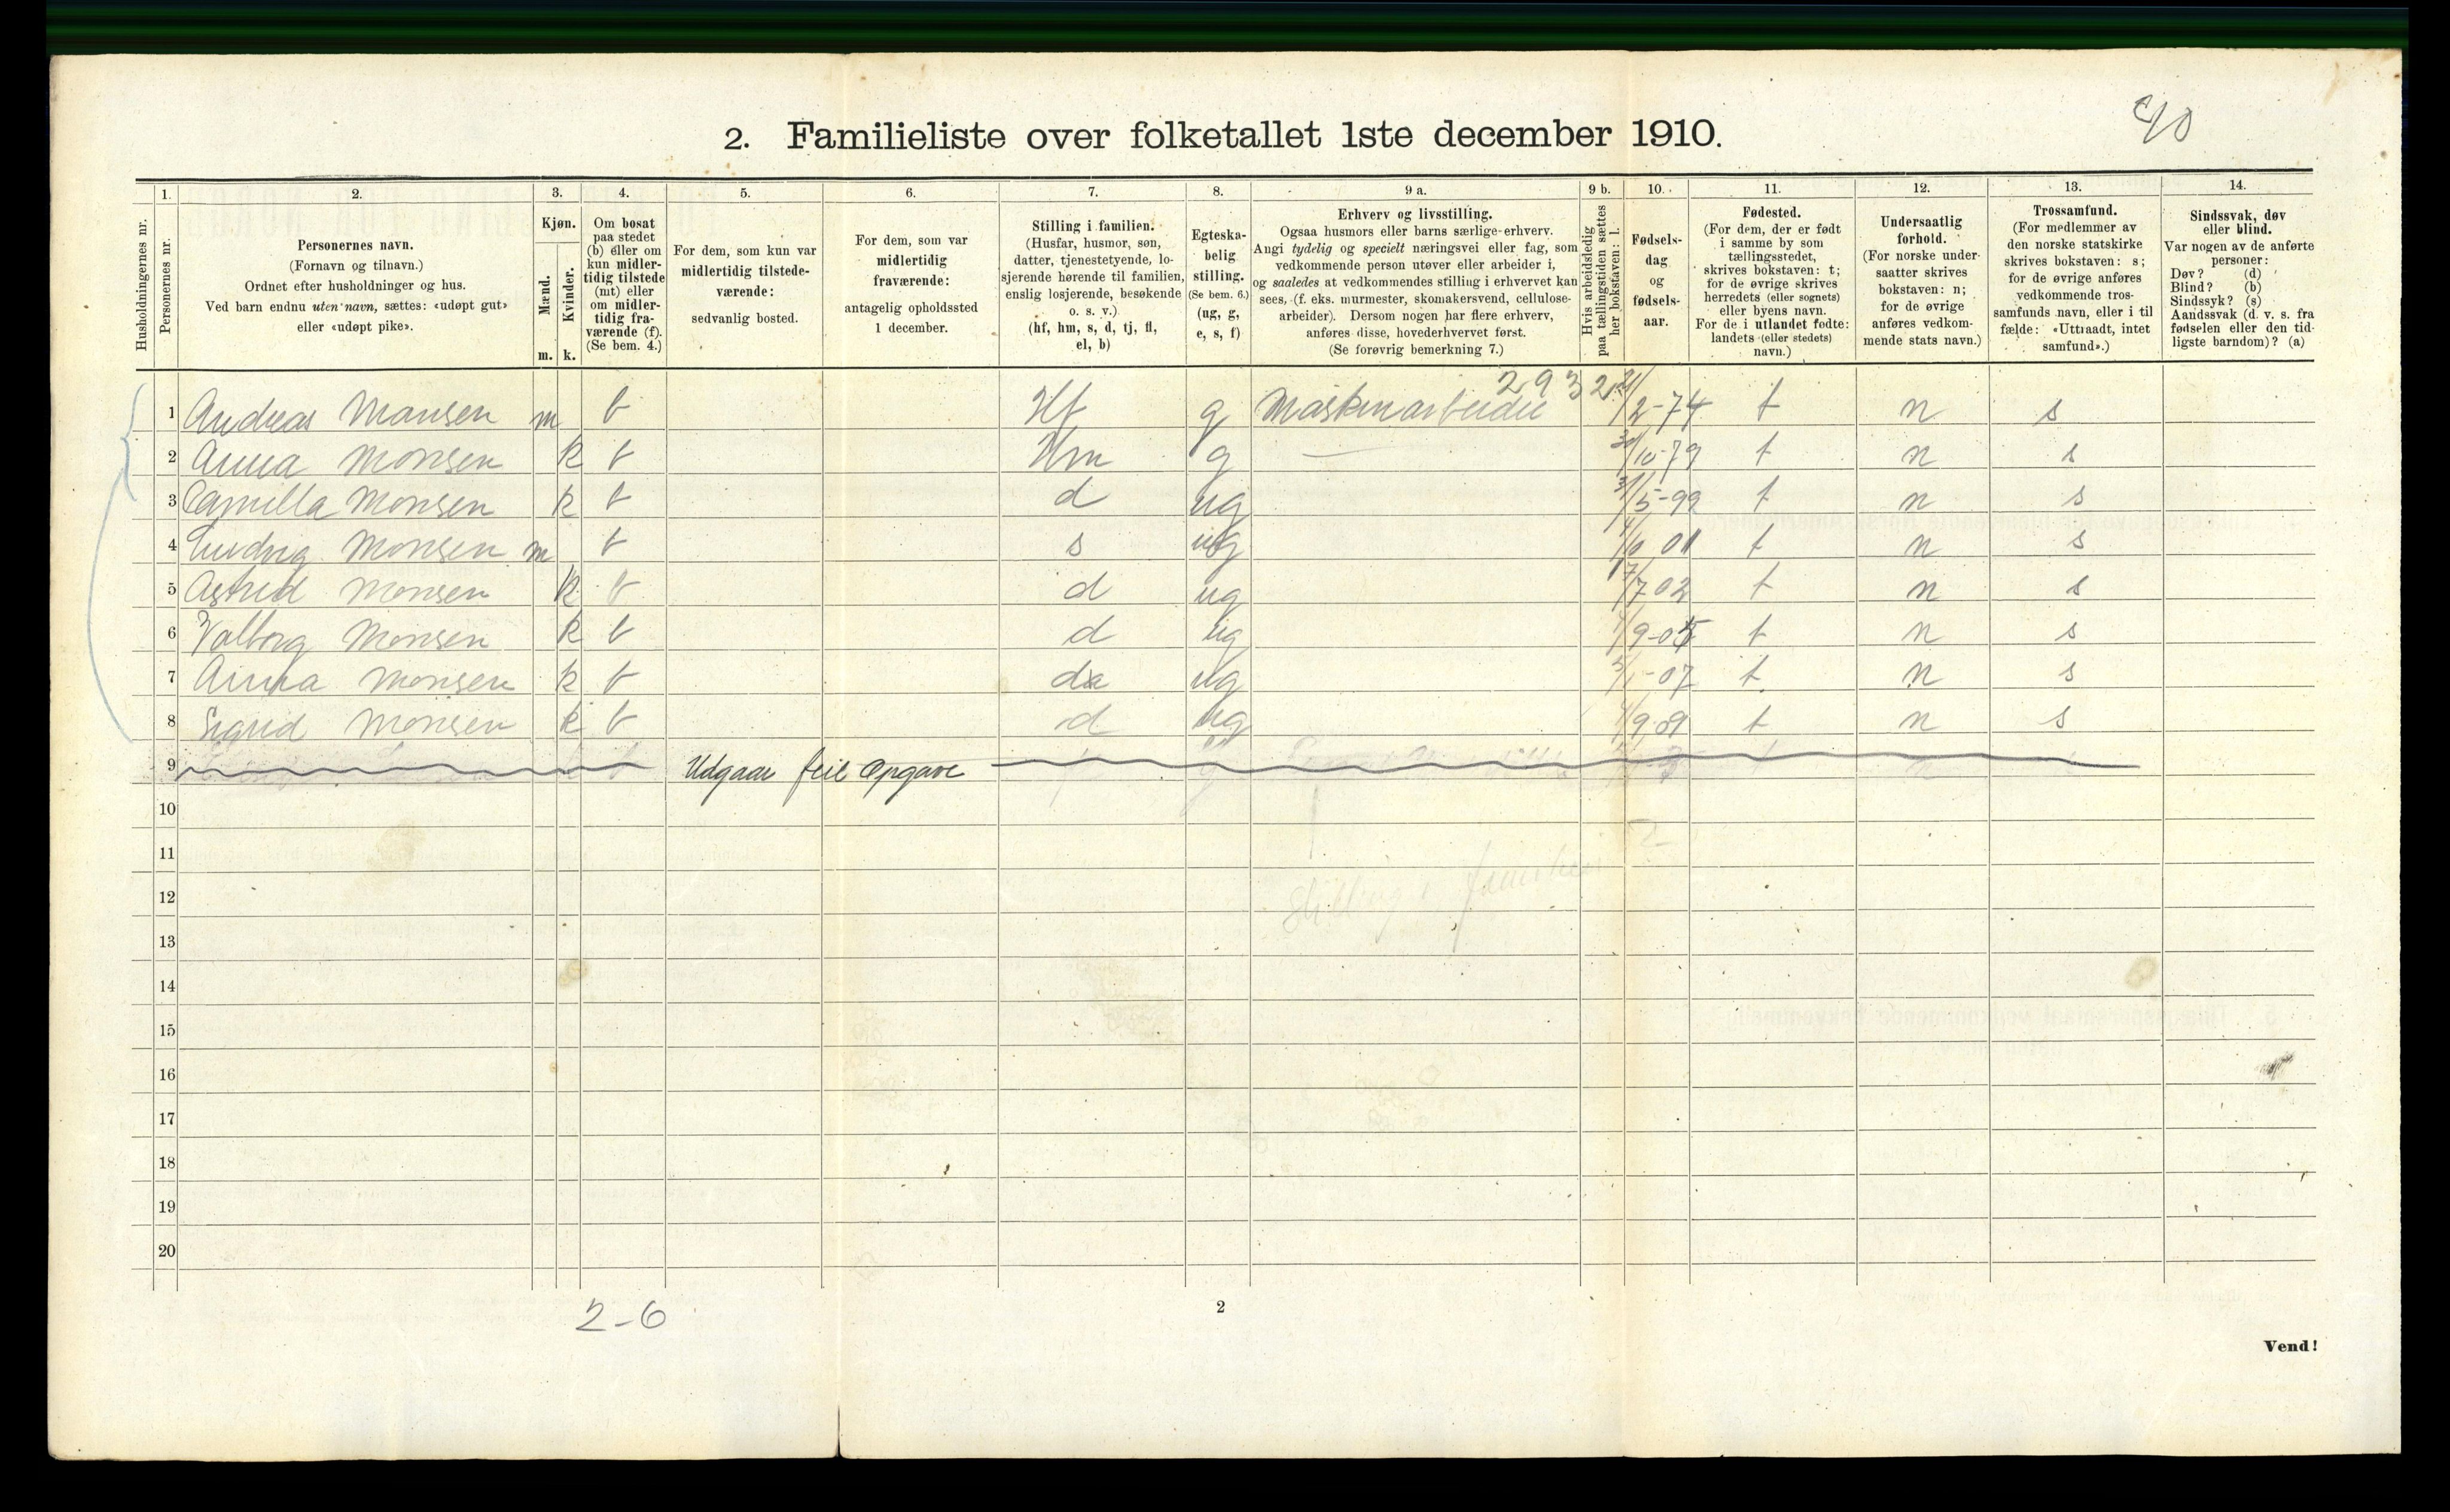 90
2. Familieliste over folketallet 1ste december 1910.
Husholdningernes nr.
1. Personernes nr.
2. Personernes navn. (Fornavn og tilnavn.) Ordnet efter husholdninger og hus. Ved barn endnu uten navn, sættes: «udøpt gut» eller «udøpt pike».
3. Kjøn. Mænd. m. Kvinder. k.
4. Om bosat paa stedet (b) eller om kun midlertidig tilstede (mt) eller om midlertidig fraværende (f). (Se bem. 4.)
5. For dem, som kun var midlertidig tilstedeværende: sedvanlig bosted.
6. For dem, som var midlertidig fraværende: antagelig opholdssted 1 december.
7. Stilling i familien. (Husfar, husmor, søn, datter, tjenestetyende, losjerende hørende til familien, enslig losjerende, besøkende o. s. v.) (hf, hm, s, d, tj, fl, el, b)
8. Egteskabelig stilling. (Se bem. 6.) (ug, g, e, s, f)
9 a. Erhverv og livsstilling. Ogsaa husmors eller barns særlige erhverv. Angi tydelig og specielt næringsvei eller fag, som vedkommende person utøver eller arbeider i, og saaledes at vedkommendes stilling i erhvervet kan sees, (f. eks. murmester, skomakersvend, cellulosearbeider). Dersom nogen har flere erhverv, anføres disse, hovederhvervet først. (Se forøvrig bemerkning 7.)
9 b. Hvis arbeidsledig paa tællingstiden sættes her bokstaven: l.
10. Fødselsdag og fødselsaar.
11. Fødested. (For dem, der er født i samme by som tællingsstedet, skrives bokstaven: t; for de øvrige skrives herredets (eller sognets) eller byens navn. For de i utlandet fødte: landets (eller stedets) navn.)
12. Undersaatlig forhold. (For norske undersaatter skrives bokstaven: n; for de øvrige anføres vedkommende stats navn.)
13. Trossamfund. (For medlemmer av den norske statskirke skrives bokstaven: s; for de øvrige anføres vedkommende trossamfunds navn, eller i tilfælde: «Uttraadt, intet samfund».)
14. Sindssvak, døv eller blind. Var nogen av de anførte personer: Døv? (d) Blind? (b) Sindssyk? (s) Aandssvak (d. v. s. fra fødselen eller den tidligste barndom)? (a)
2932
1 Andreas Monsen m b Hf g Maskinarbeider 2-74 t n s
2 Anna Monsen k b Hm g — 30/10-79 t n s
3 Camilla Monsen k b d ug 5-99 t n s
4 Ludvig Monsen m b s ug 01 t n s
5 Astrid Monsen k b d ug 17/7 02 t n s
6 Valborg Monsen k b d ug 9-05 t n s
7 Anna Monsen k b d ug 1-07 t n s
8 Sigrid Monsen k b d ug 9-09 t n s
9 Udgaar feil Opgave
10
11
12 Stilling i familien
13
14
15
16
17
18
19
20
2-6
2
Vend!